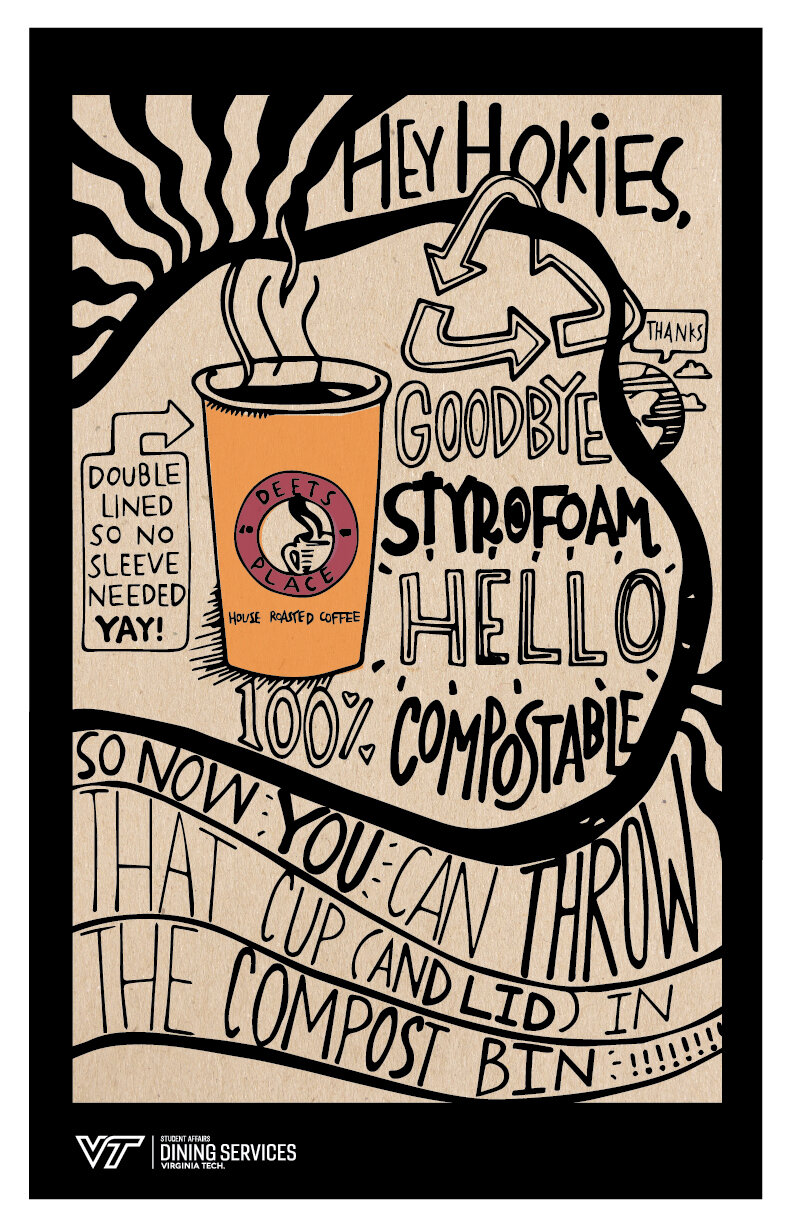 HEY HOKiES,
THANKS
GOODBYE
STYROFOAM
HELLO
100% COMPOSTABLE
DOUBLE
LINED
SO NO
SLEEVE
NEEDED
YAY!
DEETS
PLACE
HOUSE ROASTED COFFEE
SO NOW YOU CAN THROW
THAT CUP (AND LID) IN
THE COMPOST BIN !!!!!!!!
VT
STUDENT AFFAIRS
DINING SERVICES
VIRGINIA TECH.